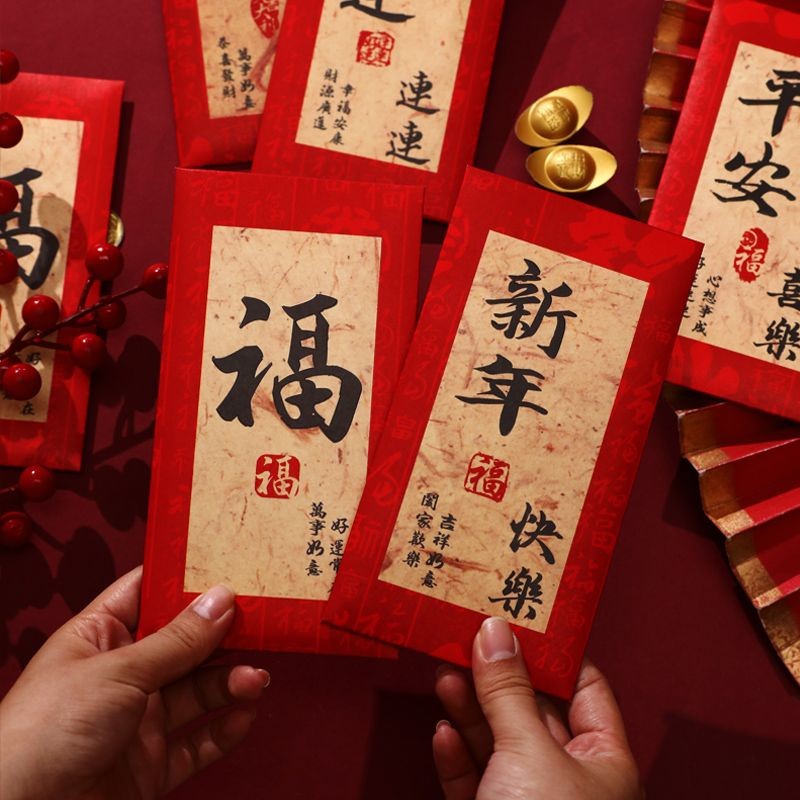 萬事如意
恭喜發財
連
連連
幸福安康
財源廣進
平安
喜樂
福
心想事成
福
福
福
好運常
萬事如意
新年
快樂
福
吉祥如意
闔家歡樂